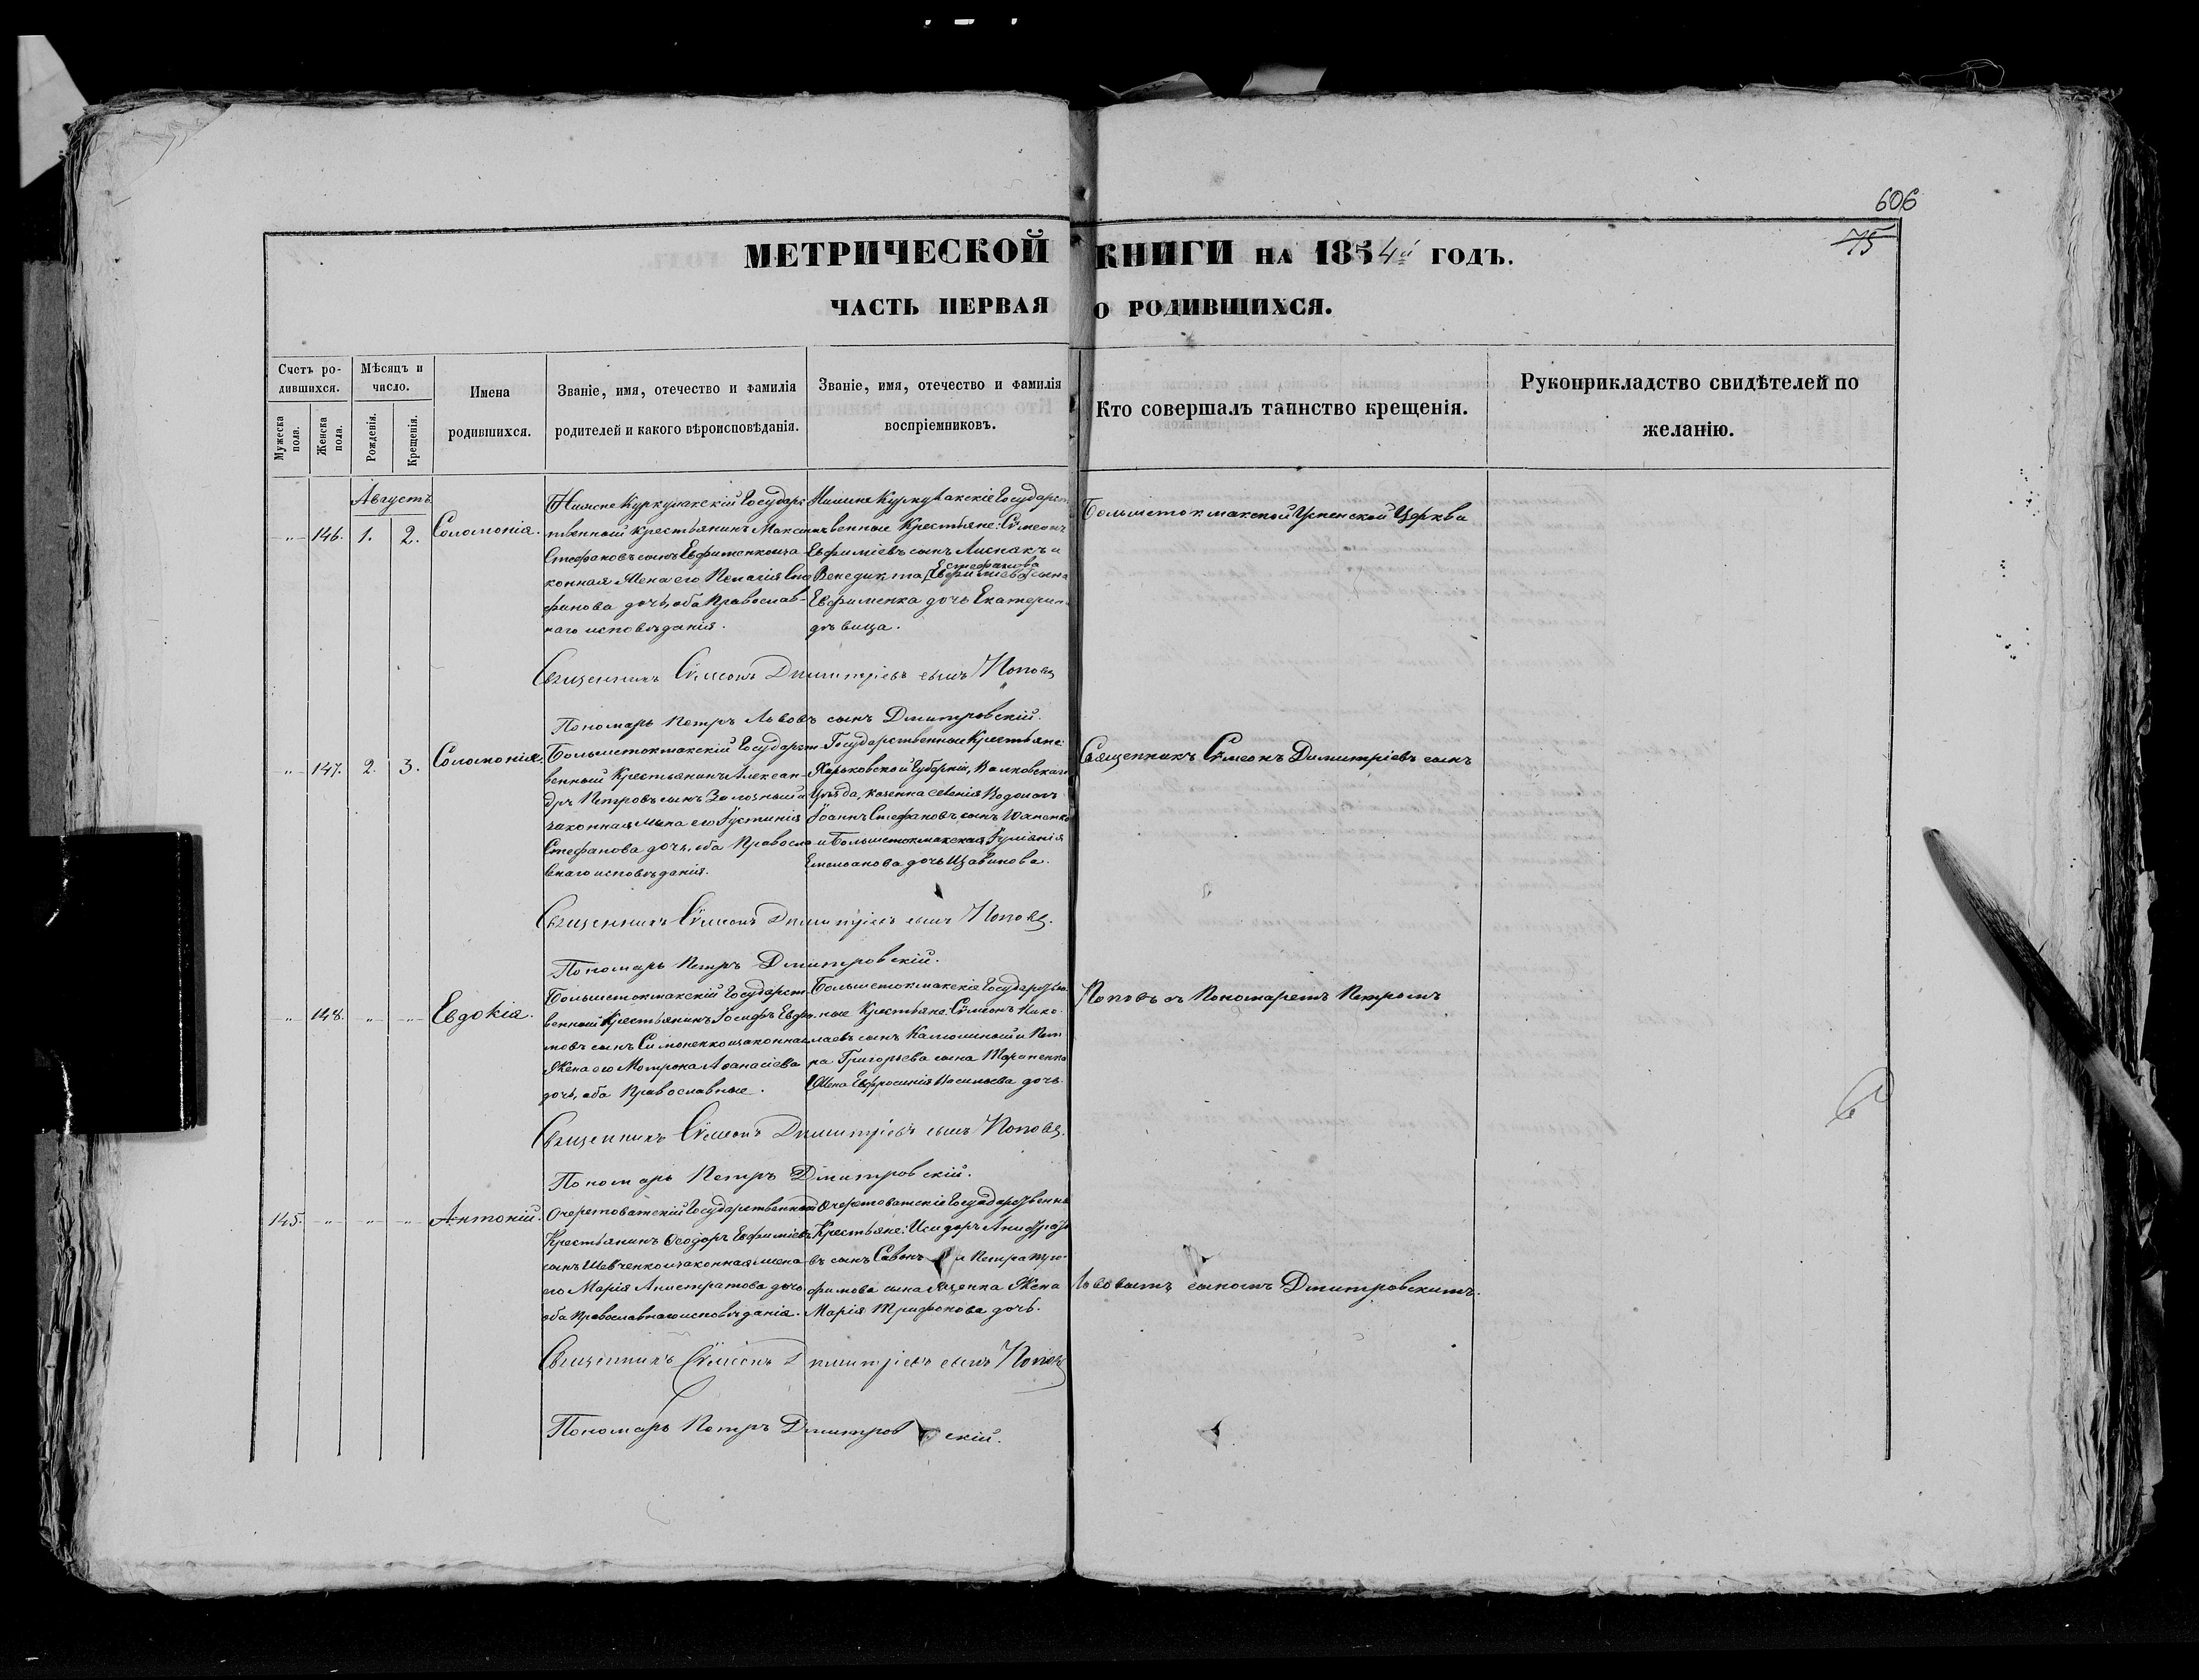 606
75
МЕТРИЧЕСКОЙ КНИГИ НА 1854й ГОДЪ.
ЧАСТЬ ПЕРВАЯ О РОДИВШИХСЯ.
Счетъ ро-
дившихся.
Мужеска пола.
Женска пола.
Мѣсяцъ и
число.
Рожденія.
Крещенія.
Имена
родившихся.
Званіе, имя, отечество и фамилія
родителей и какого вѣроисповѣданія.
Званіе, имя, отечество и фамилія
воспріемниковъ.
Кто совершалъ таинство крещенія.
Рукоприкладство свидѣтелей по
желанію.
Августъ
146. 1. 2. Соломонія.
Нижне Куркулакскій Государс
твенный Крестьянинъ Максимъ
Стефановъ сынъ Евфименко и за
конная Жена его Пелагія Сте
фанова дочь, оба Православ-
наго исповѣданія.
Нижне Куркулакскіе Государст
венные Крестьяне: Сѵмеонъ
Евфиміевъ сынъ Лиснакъ и
Стефанова
Венедикта Евфиміева сына
Евфименка дочь Екатерин
дѣвица.
Большетокмакской Успенской Церкви
Священникъ Сѵмеонъ Димитріевъ сынъ Поповъ
Пономарь Петръ Львовъ сынъ Дмитровскій.
147. 2. 3. Соломонія.
Большетокмакскій Государст
венный Крестьянинъ Алексан-
дръ Петровъ сынъ и
законная жена его Іустинія
Стефанова дочь, оба Правосла
внаго исповѣданія.
Государственные Крестьяне:
Харьковской Губерніи, Валковскаго
Уѣзда, казенна селенія Водолагъ
Іоаннъ Стефановъ сынъ Юхненко
и Большетокмакская Іуліанія
Емельянова дочь Щавинова.
Священникъ Сѵмеонъ Димитріевъ сынъ
Священникъ Сѵмеонъ Димитріевъ сынъ Поповъ.
Пономарь Петръ Дмитровскій.
148. Евдокія.
Большетокмакскій Государст-
венный Крестьянинъ Іосифъ Евфи
мовъ сынъ Симоненко и законная
Жена его Матрона Аѳанасіева
дочь, оба Православные.
Большетокмакскіе Государствен
ные Крестьяне: Сѵмеонъ Нико-
лаевъ сынъ Калюжный и Пет
ра Григорьева сына Тараненка
Жена Евфросинія Васильева дочь.
Поповъ съ Пономаремъ Петромъ
Священникъ Сѵмеонъ Димитріевъ сынъ Поповъ.
Пономарь Петръ Дмитровскій.
145. Антоній.
Очеретоватскій Государственный
Крестьянинъ Ѳеодоръ Евфиміевъ
сынъ Шевченко и законная жена
его Марія Анистратова дочь
оба Православнаго исповѣданія.
Очеретоватскіе Государственны
Крестьяне: Исидоръ
въ сынъ и Петра Тро-
фимова сына Яценка Жена
Марія Трифонова дочь.
Львовымъ сыномъ Дмитровскимъ.
Священникъ Сѵмеонъ Димитріевъ сынъ Поповъ
Пономарь Петръ Дмитровскій.